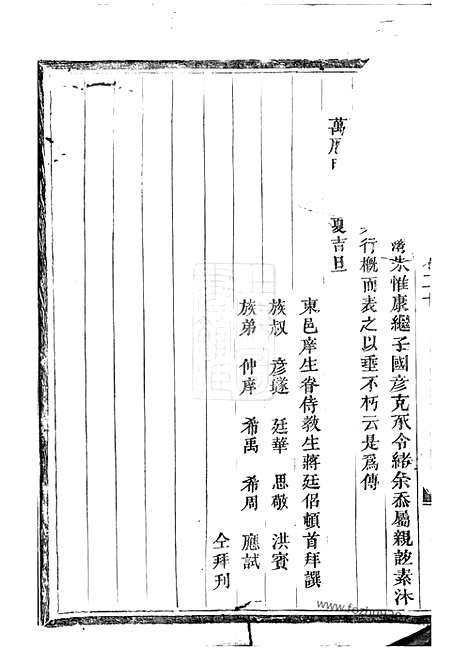 朱惟康繼子國彥克承令緒余忝屬親誼素沐
行概而表之以垂不朽云是爲傳
萬曆 夏吉旦
東邑庠生眷侍教生蔣廷侶頓首拜譔
族叔 彥璲 廷華 思敬 洪賓
族弟 仲庠 希禹 希周 應試
仝拜刊